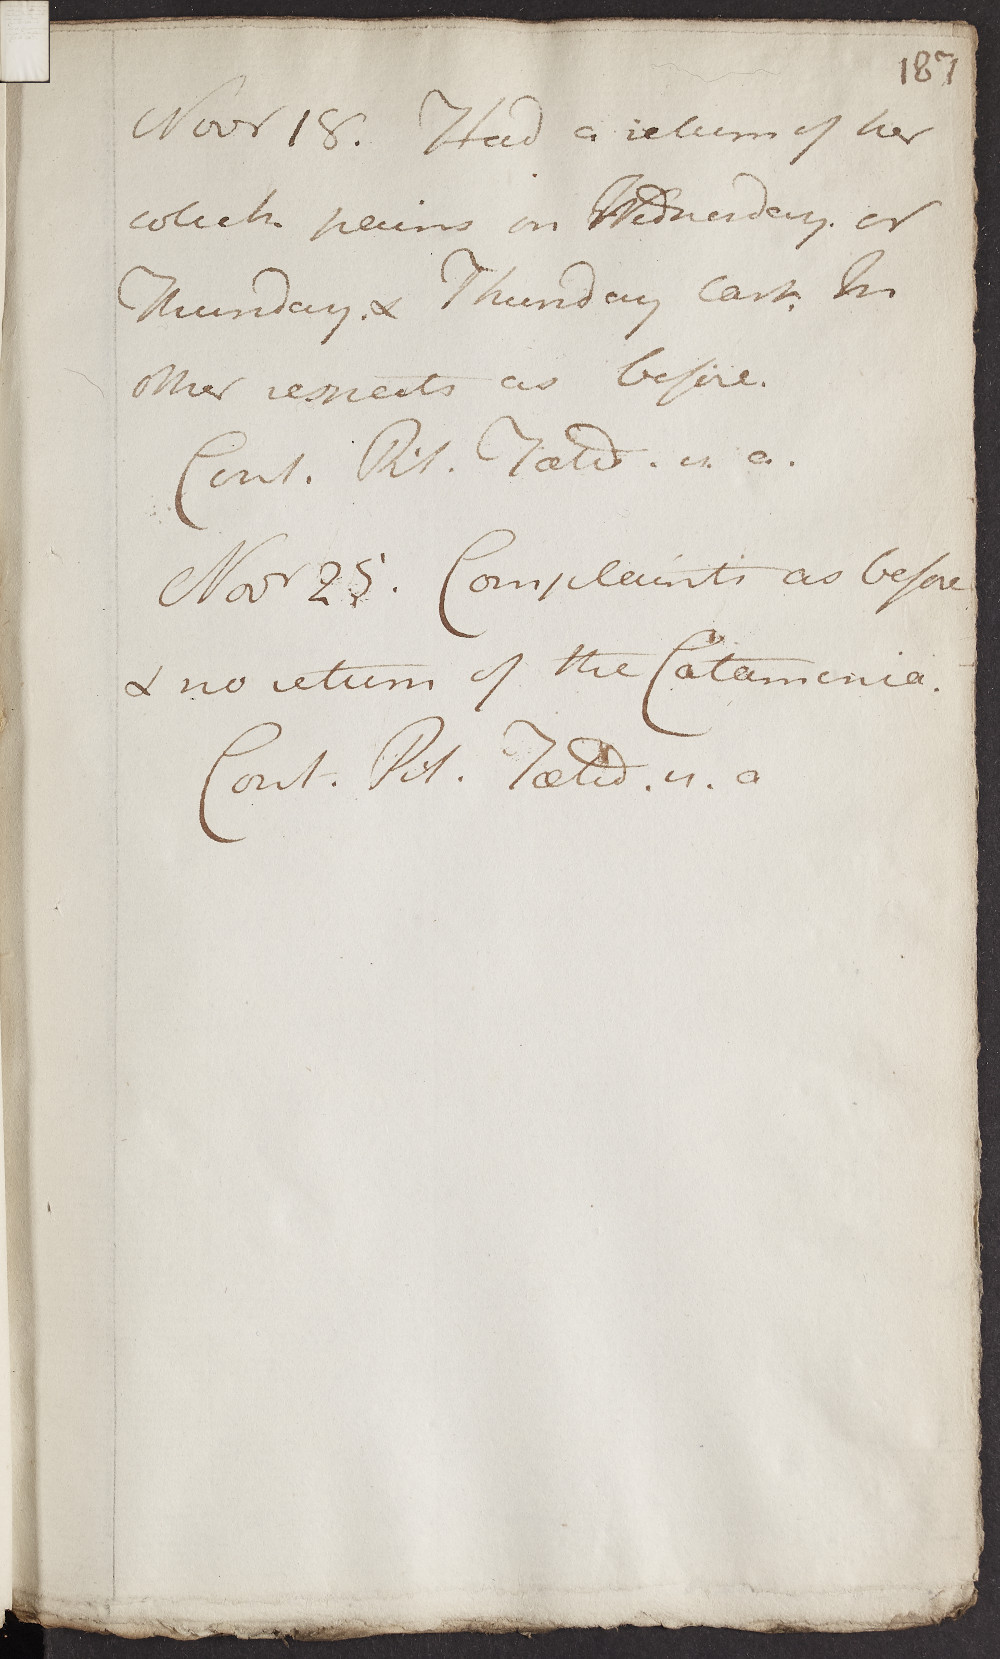 187
Novr 18. Had a return of her
colich pains on Wednesday or
Thursday. & Thursday last. In
other respects as before.
Cont. Pil. Fœtid. u. a.
Novr 25. Complaints as before
& no return of the Catamenia.
Cont. Pil. Fœtid. u. a